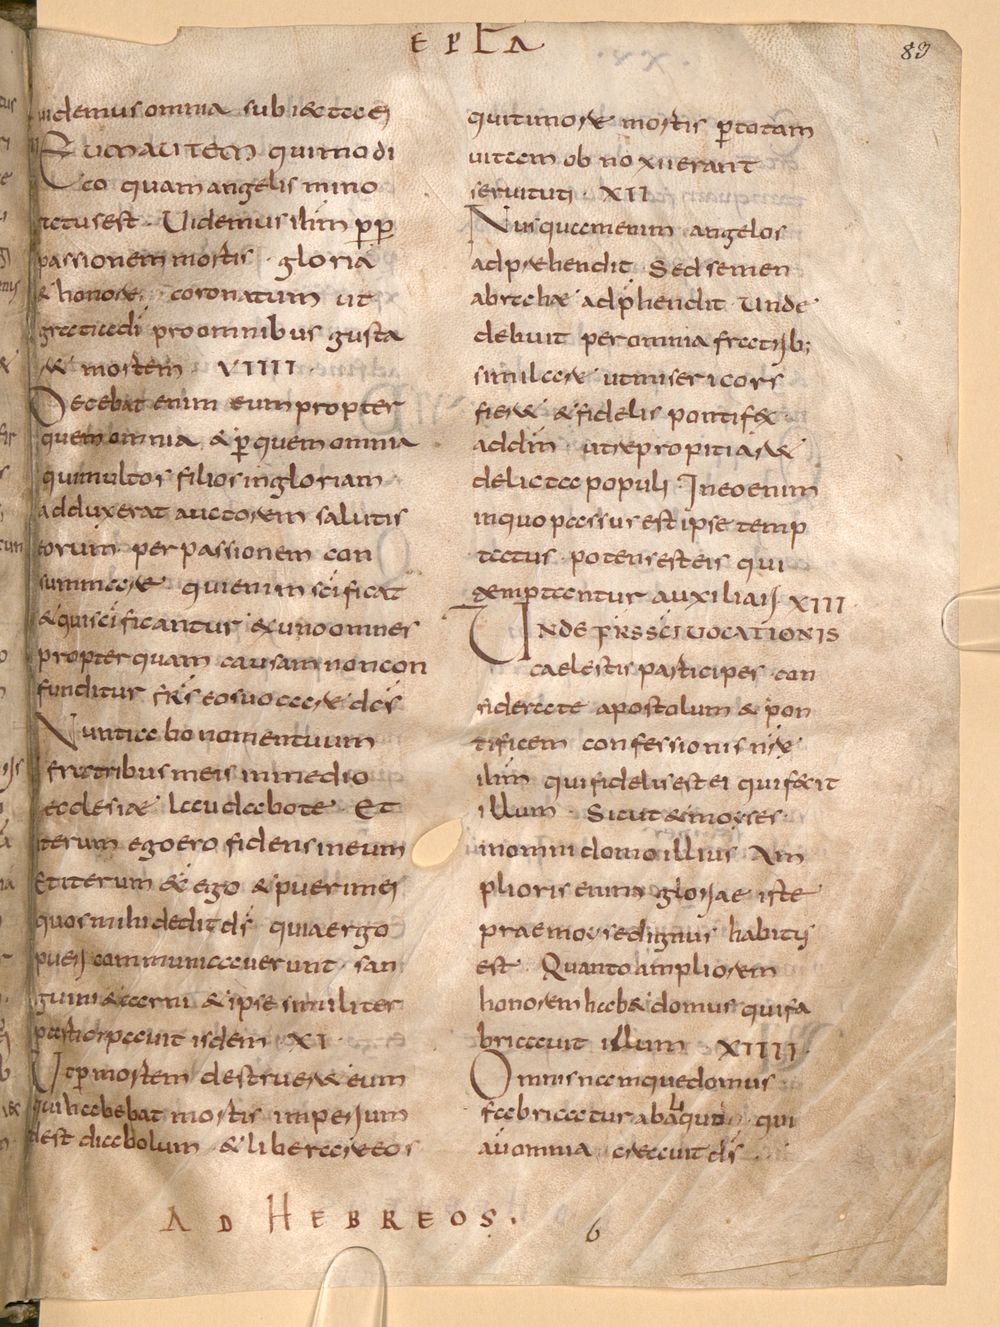 EPLA
89
uidemus omnia subiecta ei
Eum autem qui modi
co quam angelis mino
ratus est · Uidemus ihm pp
passionem mortis · gloria
& honore coronatum ut
gratia di pro omnibus gusta
ret mortem VIIII
Decebat enim eum propter
quem omnia & p quem omnia
qui multos filios in gloriam
adduxerat auctorem salutis
eorum · per passionem con
summare · qui enim scificat
& qui scificantur ex uno omnes
propter quam causam non con
funditur frs eos uocare dcs
Nuntiabo nomen tuum
fratribus meis in medio
ecclesiae laudabo te · Et
iterum ego ero fidens in eum
Et iterum ecce ego & pueri mei
quos mihi dedit ds quia ergo
pueri communicauerunt · san
guini & carni & ipse similiter
participauit isdem XI
Ut p mortem destrueret eum
qui habebat mortis imperium
id est diabolum · & liberaret eos
qui timore mortis p totam
uitam obnoxii erant
seruituti · XII
Nusquam enim angelos
adprehendit Sed semen
abrahae adphendit Unde
debuit per omnia fratrib;
similare ut misericors
fieret & fidelis pontifex
ad dm ut repropitiaret
delicta populi · In eo enim
in quo passus est ipse temp
tatus · potens est eis qui
temptantur auxiliari XIII
UNDE FRS SCI UOCATIONIS
caelestis participes con
siderate apostolum & pon
tificem confessionis nre
ihm qui fidelis est ei qui fecit
illum · Sicut & moyses
in omni domo illius Am
plioris enim gloriae iste
prae moyse dignus habitus
est · Quanto ampliorem
honorem habet domus qui fa
bricauit illum XIIII
Omnis namque domus
fabricatur ab aliquo · qui
au omnia creauit ds
AD HEBREOS.
6